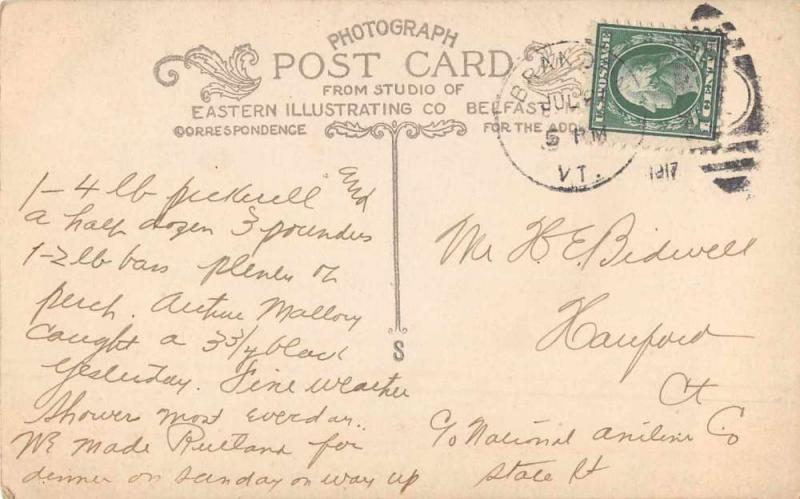 PHOTOGRAPH
POST CARD
FROM STUDIO OF
EASTERN ILLUSTRATING CO BELFAST
CORRESPONDENCE
FOR THE ADD
BRAND
JUL
5 PM
VT.
1917
U.S. POSTAGE
1 CENT 1
1-4 lb pickerell End
a half dozen 3 pounders
1-2 lb bass plenty of
perch. Arthur Mallory
caught a 3 3/4 black
yesterday. Fine weather
shower most everday..
We made Rutland for
dinner on sunday on way up
S
Mr H. E. Bidwell
Hartford
Ct
c/o National Aniline Co
State St